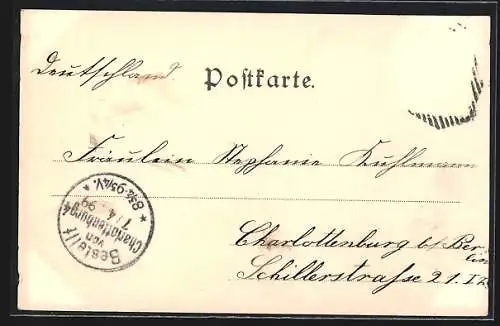 Deutschland.
Postkarte.
Fräulein Stephanie Kuhlmann
Charlottenburg b/Ber-
lin
Schillerstrasse 21. I
Bestellt
von
Charlottenburg 4
7/4.99
* 8¾-9¾V. *